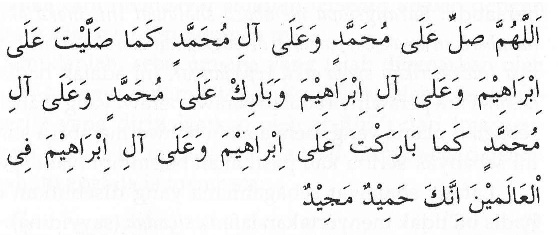 اَللَّهُمَّ صَلِّ عَلَى مُحَمَّدٍ وَعَلَى آلِ مُحَمَّدٍ كَمَا صَلَّيْتَ عَلَى
اِبْرَاهِيْمَ وَعَلَى آلِ اِبْرَاهِيْمَ وَبَارِكْ عَلَى مُحَمَّدٍ وَعَلَى آلِ
مُحَمَّدٍ كَمَا بَارَكْتَ عَلَى اِبْرَاهِيْمَ وَعَلَى آلِ اِبْرَاهِيْمَ فِى
الْعَالَمِيْنَ اِنَّكَ حَمِيْدٌ مَجِيْدٌ